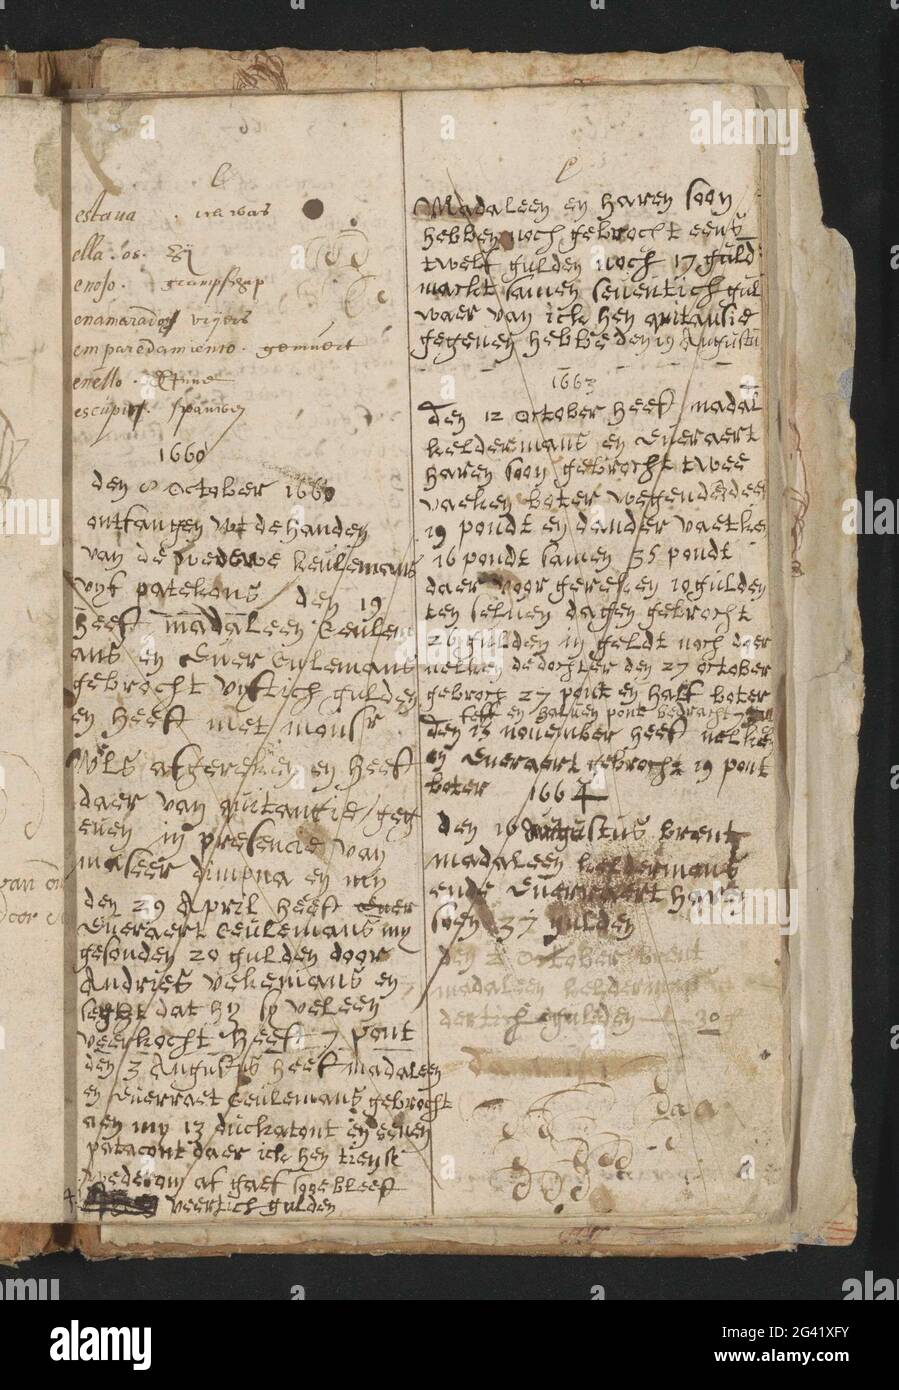 estaua . ick was
ella . os . zij
enojo .
enamarados vrijers
emparedamiento . gemuert
enello .
escupir .
1660
den 8 October 1660
ontfangen wt de handen
van de wedewe keulemans
vyf patekons den 19
heeft madaleen Ceulem
ans en Ever Culemans
gebrocht vyftich gulden
en heeft met monsr
Wls afgereken en heeft
daer van quitantie geg
euen in presencie van
maseer dimpna en my
den 29 April heeft
Eueraert Ceulemans my
gesonden 20 gulden door
Andries vekemans en
seght dat hy sy veleen
veerkocht heeft 7 pont
den 3 Augustus heeft madaleen
en Euerraet Ceulemans gebrocht
aen my 13 duckatont en eenen
patacont daer ick hen
wederom af gaef soo bleeft
veertich gulden
Madaleen en haren soon
hebben noch gebrocht eens
twelf gulden noch 17 guld
mackt samen seuentich gul
waer van ick hen quitansie
gegeuen hebbe den 19 Augusti
1663
den 12 October heeft madal
keldermans en Eueraert
haren soon gebrocht twee
vaeken boter wegende deen
19 pondt en dander vaetken
16 pondt samen 35 pondt
daer voor gereken 10 gulden
ten seluen dagen gebrocht
26 gulden in geldt noch door
nelken de dochter den 27 october
gebroct 27 pont en half boter
en haluen pont bedracht 7
den 13 nouember heeft nelken
en Eueraert gebrocht 19 pont
boter 1664
den 16 Augustus brent
madaleen keldermans
ende Eueraert haren
soen 37 gulden
den 2 October brent
madaleen kelderman
dertich gulden 30
daa